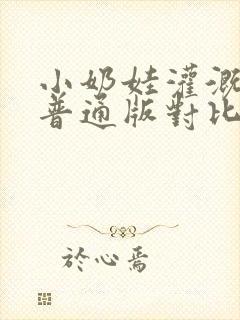 小奶娃灌溉
普通版對比
於心焉